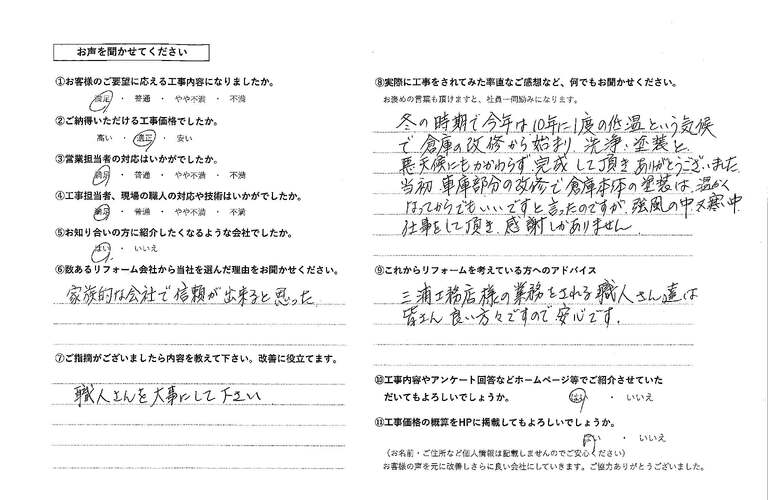 お声を聞かせてください
①お客様のご要望に応える工事内容になりましたか。
満足 ・ 普通 ・ やや不満 ・ 不満
②ご納得いただける工事価格でしたか。
高い ・ 適正 ・ 安い
③営業担当者の対応はいかがでしたか。
満足 ・ 普通 ・ やや不満 ・ 不満
④工事担当者、現場の職人の対応や技術はいかがでしたか。
満足 ・ 普通 ・ やや不満 ・ 不満
⑤お知り合いの方に紹介したくなるような会社でしたか。
はい ・ いいえ
⑥数あるリフォーム会社から当社を選んだ理由をお聞かせください。
家族的な会社で信頼が出来ると思った
⑦ご指摘がございましたら内容を教えて下さい。改善に役立てます。
職人さんを大事にして下さい
⑧実際に工事をされてみた率直なご感想など、何でもお聞かせください。
お褒めの言葉も頂けますと、社員一同励みになります。
冬の時期で今年は10年に1度の低温という気候
で倉庫の改修から始まり、洗浄・塗装と
悪天候にもかかわらず完成して頂きありがとうございました
当初車庫部分の改修で倉庫本体の塗装は、温かく
なってからでもいいですと言ったのですが、強風の中又寒い中
仕事をして頂き、感謝しかありません。
⑨これからリフォームを考えている方へのアドバイス
三浦工務店様の業務をされる職人さん達は
皆さん良い方々ですので安心です。
⑩工事内容やアンケート回答などホームページ等でご紹介させていた
だいてもよろしいでしょうか。 はい ・ いいえ
⑪工事価格の概算をHPに掲載してもよろしいでしょうか。
はい ・ いいえ
（お名前・ご住所など個人情報は記載しませんのでご安心ください）
お客様の声を元に改善しさらに良い会社にしていきます。ご協力ありがとうございました。